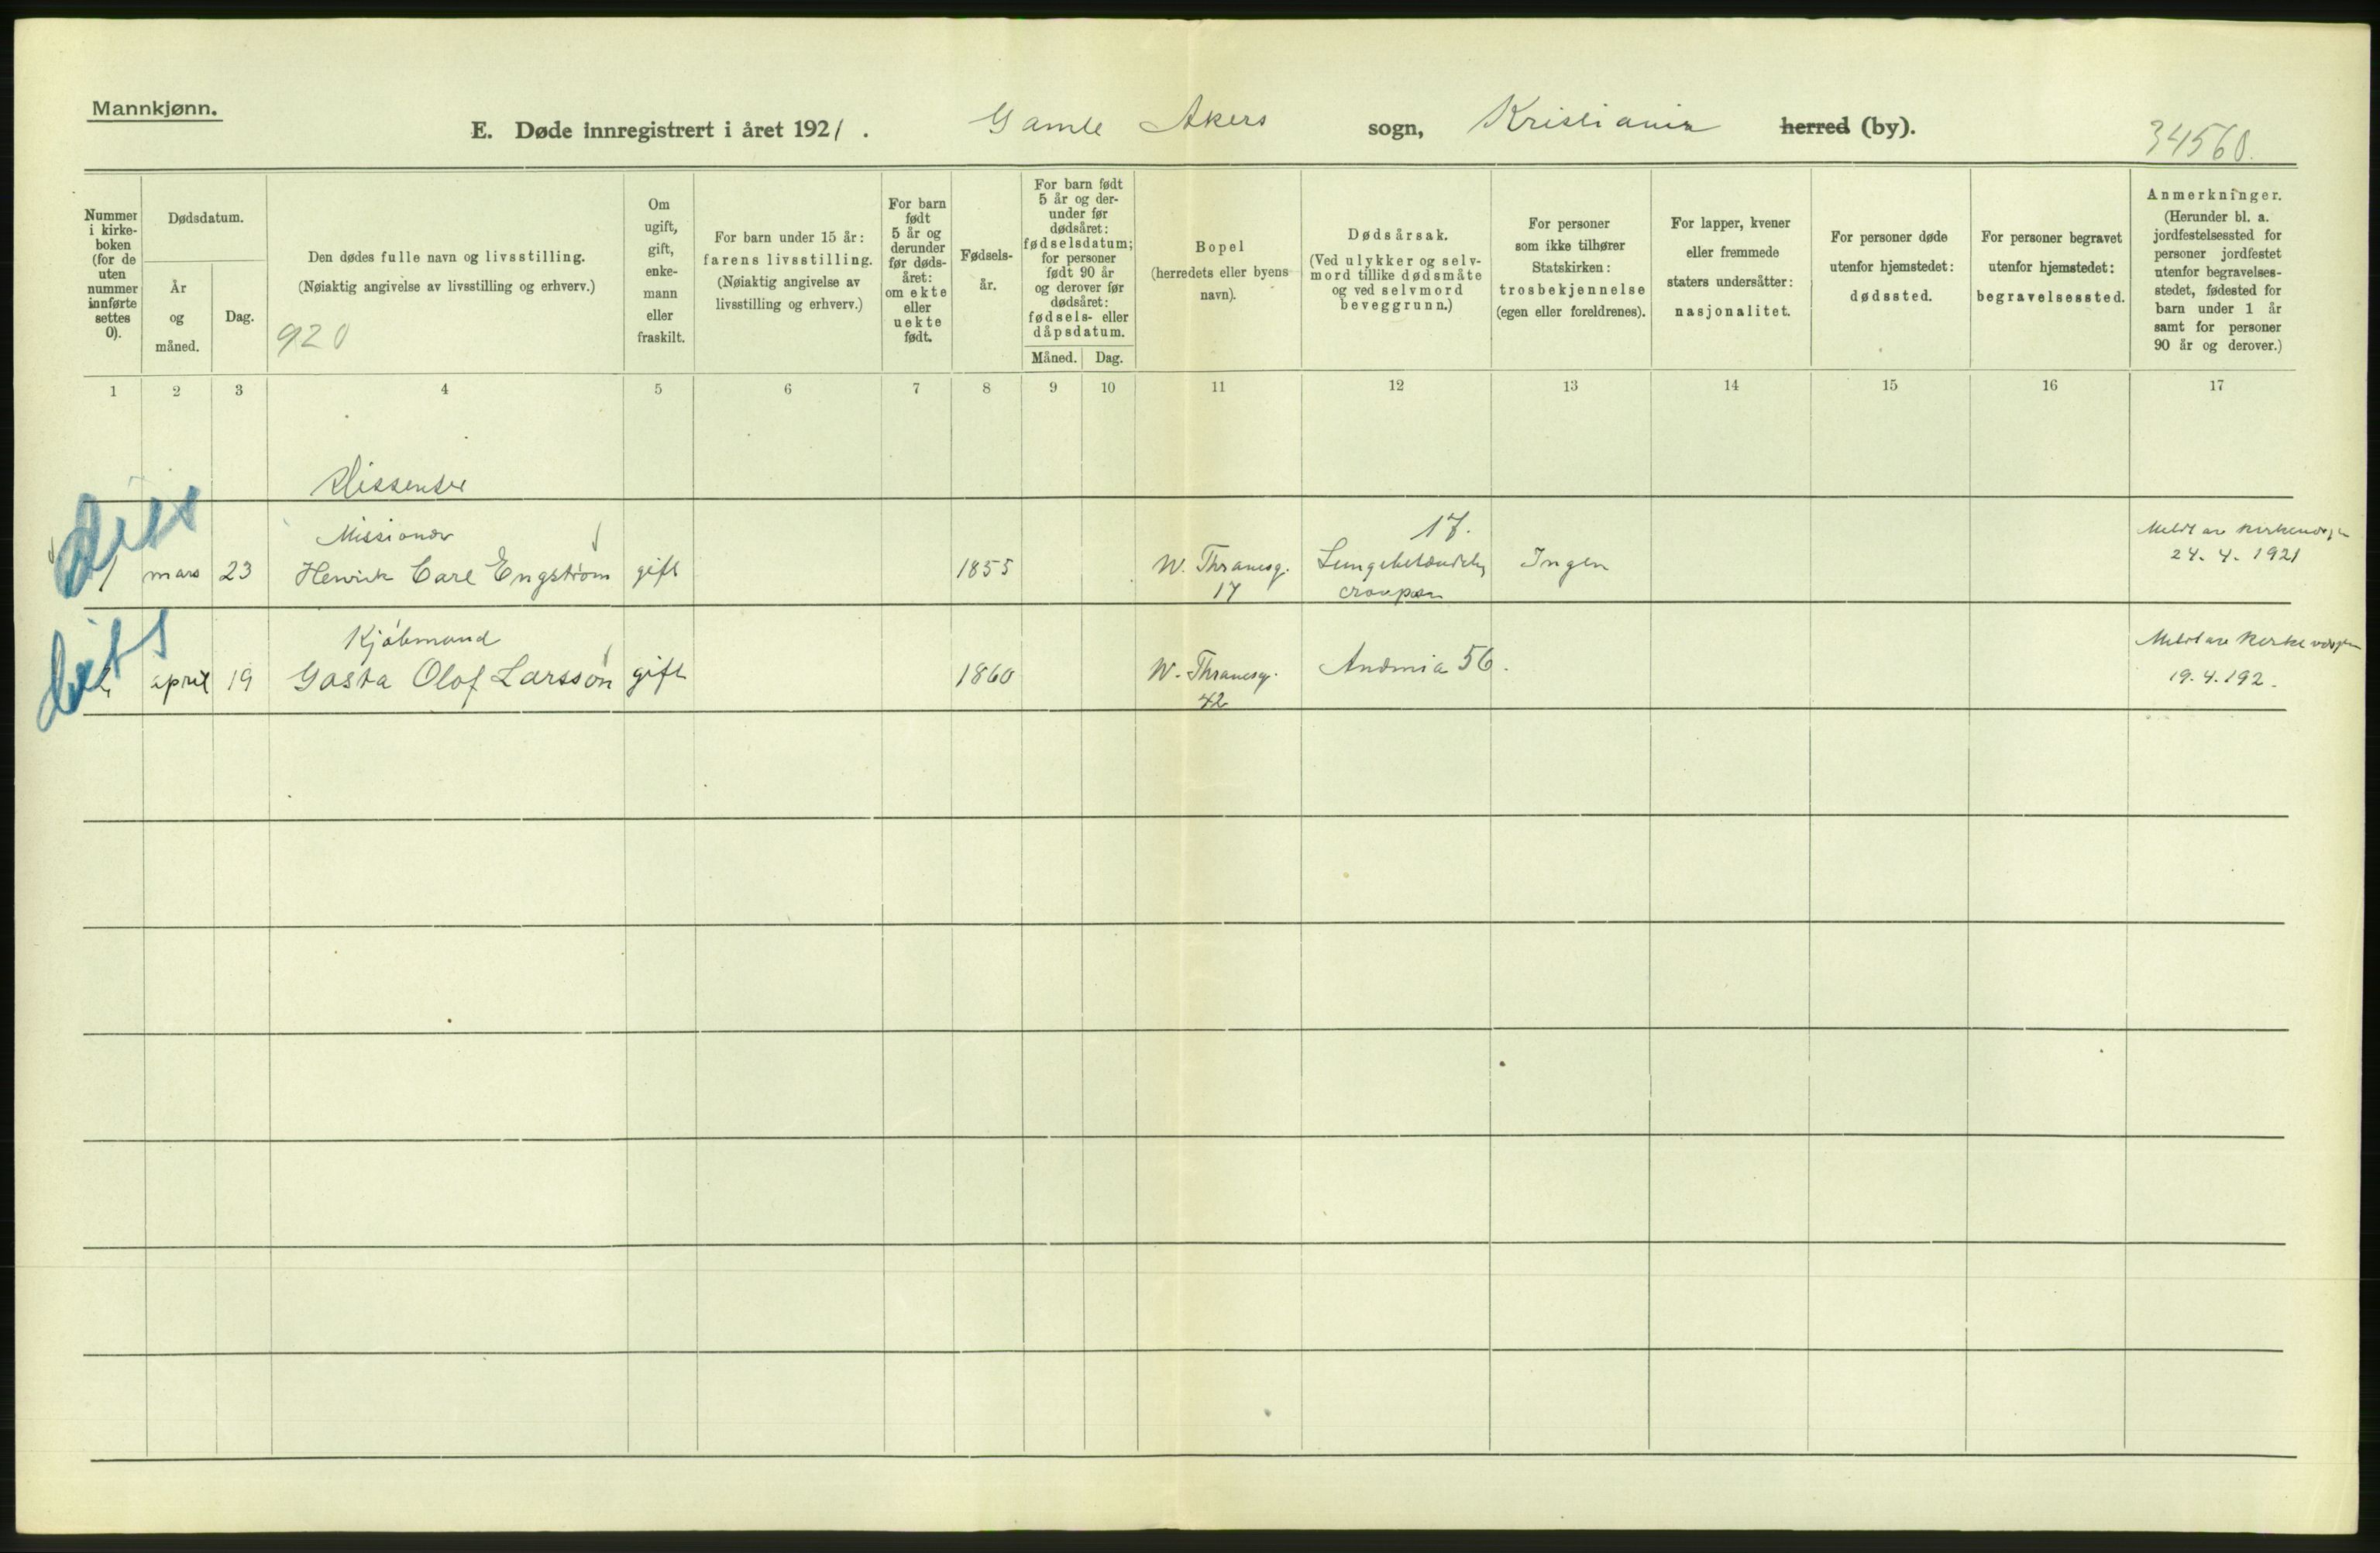 Mannkjønn.
E. Døde innregistrert i året 1921. Gamle Akers sogn, Kristiania herred (by).
34560.
Nummer i kirke- boken (for de uten nummer innførte settes 0).
Dødsdatum.
År og måned.
Dag.
Den dødes fulle navn og livsstilling.
(Nøiaktig angivelse av livsstilling og erhverv.)
920
Om ugift, gift, enke- mann eller fraskilt.
For barn under 15 år: farens livsstilling. (Nøiaktig angivelse av livsstilling og erhverv.)
For barn født 5 år og derunder før døds- året: om ekte eller uekte født.
Fødsels- år.
For barn født 5 år og der- under før dødsåret: fødselsdatum; for personer født 90 år og derover før dødsåret: fødsels- eller dåpsdatum.
Måned. Dag.
Bopel (herredets eller byens navn).
Dødsårsak. (Ved ulykker og selv- mord tillike dødsmåte og ved selvmord beveggrunn.)
For personer som ikke tilhører Statskirken: trosbekjennelse (egen eller foreldrenes).
For lapper, kvener eller fremmede staters undersåtter: nasjonalitet.
For personer døde utenfor hjemstedet: dødssted.
For personer begravet utenfor hjemstedet: begravelsessted.
Anmerkninger. (Herunder bl. a. jordfestelsessted for personer jordfestet utenfor begravelses- stedet, fødested for barn under 1 år samt for personer 90 år og derover.)
1 2 3 4 5 6 7 8 9 10 11 12 13 14 15 16 17
Dissenter
Missionær 17.
1 mars 23 Henrik Carl Engstrøm gift 1855 W. Thranesg. 17 Lungebetændelse croupøs Ingen Meldt av kirkevergen 24. 4. 1921
Kjøbmand
2 april 19 Gøsta Olof Larsson gift 1860 W. Thranesg. 42 Anæmia 56. Meldt av kirkevergen 19. 4. 192.